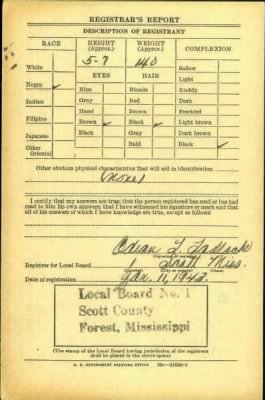 REGISTRAR'S REPORT
DESCRIPTION OF REGISTRANT
RACE
HEIGHT
(Approx.)
WEIGHT
(Approx.)
COMPLEXION
5-7
140
White
Sallow
EYES
HAIR
Light
Negro ✓
Blue
Blonde
Ruddy
Indian
Gray
Red
Dark
Hazel
Brown
Freckled
Filipino
Brown ✓
Black ✓
Light brown
Japanese
Black
Gray
Dark brown
Other
Oriental
Bald
Black ✓
Other obvious physical characteristics that will aid in identification
none
I certify that my answers are true; that the person registered has read or has had
read to him his own answers; that I have witnessed his signature or mark and that
all of his answers of which I have knowledge are true, except as follows:
L.
(Signature of registrar)
Registrar for Local Board 1 Scott Miss.
(Number) (City or county) (State)
Date of registration 11, 1942
Local Board No. 1
Scott County
Forest, Mississippi
(The stamp of the Local Board having jurisdiction of the registrant
shall be placed in the above space)
U. S. GOVERNMENT PRINTING OFFICE